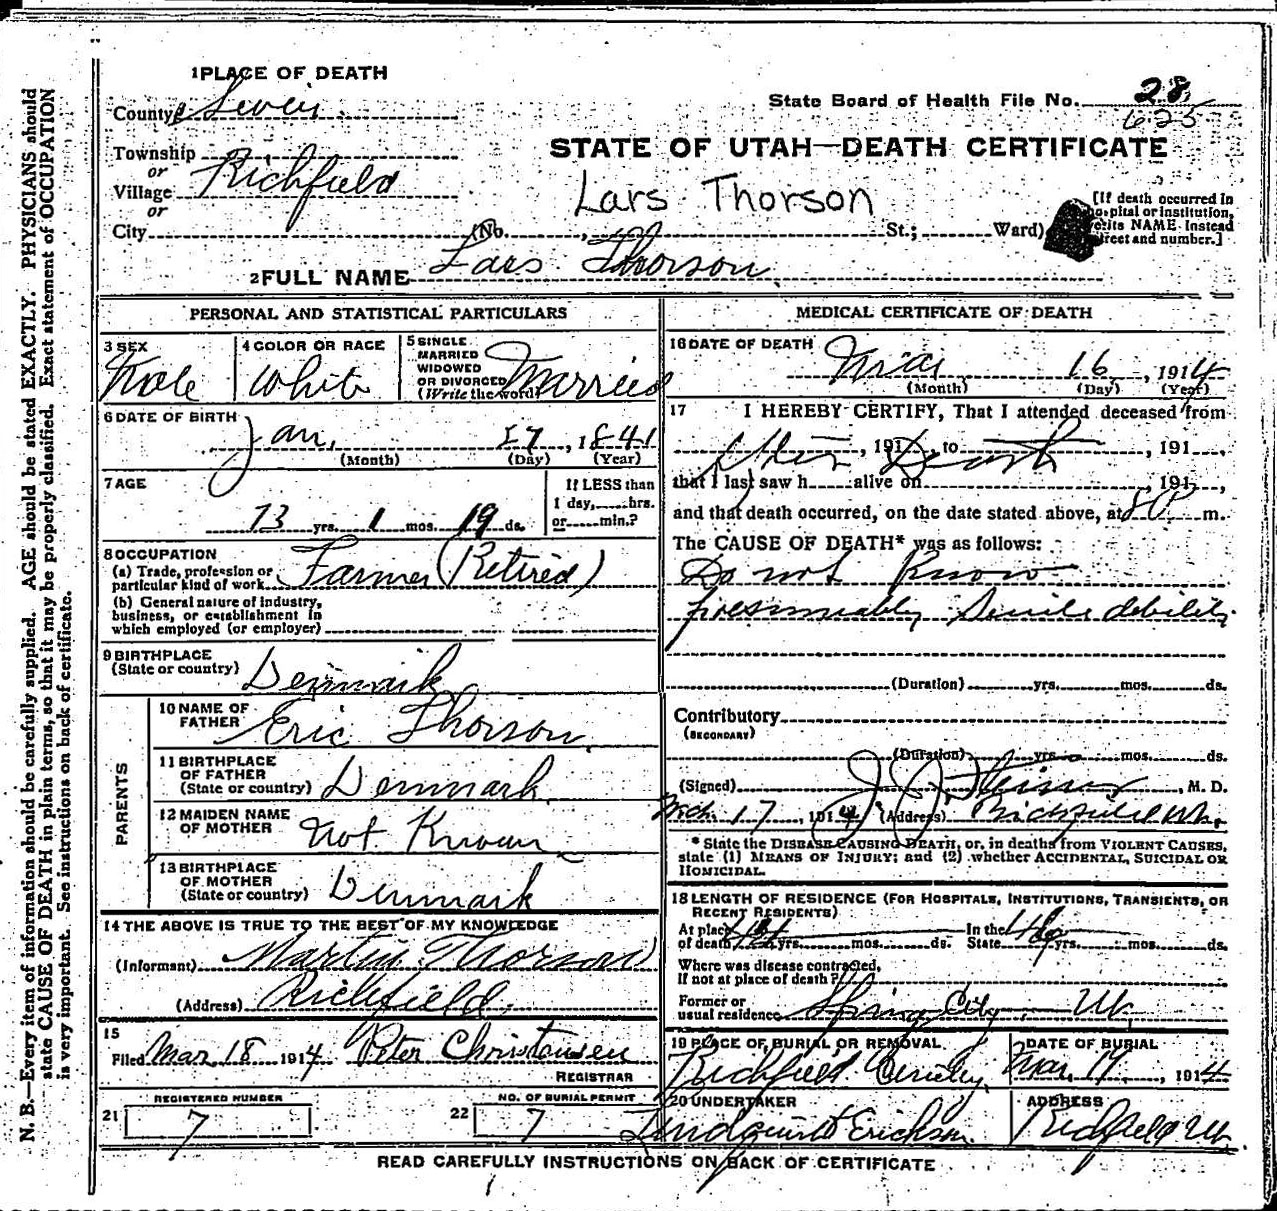 1 PLACE OF DEATH
County Sevier
State Board of Health File No. 28
625
Township
or
Village Richfield
or
City (No. , St.; Ward)
STATE OF UTAH—DEATH CERTIFICATE
Lars Thorson
[If death occurred in
hospital or institution,
NAME instead
street and number.]
2 FULL NAME Lars Thorson
PERSONAL AND STATISTICAL PARTICULARS
3 SEX Male
4 COLOR OR RACE White
5 SINGLE
MARRIED
WIDOWED
OR DIVORCED
(Write the word) Married
6 DATE OF BIRTH
Jan, 27, 1841
(Month) (Day) (Year)
7 AGE
73 yrs. 1 mos. 19 ds.
If LESS than
1 day, hrs.
or min.?
8 OCCUPATION
(a) Trade, profession or
particular kind of work Farmer (Retired)
(b) General nature of industry,
business, or establishment in
which employed (or employer)
9 BIRTHPLACE
(State or country) Denmark
PARENTS
10 NAME OF
FATHER Eric Thorson
11 BIRTHPLACE
OF FATHER
(State or country) Denmark
12 MAIDEN NAME
OF MOTHER not Known
13 BIRTHPLACE
OF MOTHER
(State or country) Denmark
14 THE ABOVE IS TRUE TO THE BEST OF MY KNOWLEDGE
(Informant) Martin Thorson
(Address) Richfield
15
Filed Mar 18 1914 Peter Christensen
REGISTRAR
21 REGISTERED NUMBER
7
22 NO. OF BURIAL PERMIT
7
MEDICAL CERTIFICATE OF DEATH
16 DATE OF DEATH
Mar 16, 1914
(Month) (Day) (Year)
17 I HEREBY CERTIFY, That I attended deceased from
After, 191 , to Death, 191 ,
that I last saw h alive on , 191 ,
and that death occurred, on the date stated above, at 8 P m.
The CAUSE OF DEATH* was as follows:
Do not Know
presumably Senile debility
(Duration) yrs. mos. ds.
Contributory
(SECONDARY)
(Duration) yrs. mos. ds.
(Signed) J. J. Steiner, M. D.
Mch. 17, 1914 (Address) Richfield Ut.
* State the DISEASE CAUSING DEATH, or, in deaths from VIOLENT CAUSES,
state (1) MEANS OF INJURY; and (2) whether ACCIDENTAL, SUICIDAL OR
HOMICIDAL.
18 LENGTH OF RESIDENCE (FOR HOSPITALS, INSTITUTIONS, TRANSIENTS, OR
RECENT RESIDENTS)
At place
of death yrs. mos. ds. In the
State yrs. mos. ds.
Where was disease contracted,
If not at place of death?
Former or
usual residence Spring City Ut.
19 PLACE OF BURIAL OR REMOVAL
Richfield Cemetery
DATE OF BURIAL
Mar, 19, 1914
20 UNDERTAKER
Lindquist & Erickson
ADDRESS
Richfield Ut.
READ CAREFULLY INSTRUCTIONS ON BACK OF CERTIFICATE
N. B.—Every item of information should be carefully supplied. AGE should be stated EXACTLY. PHYSICIANS should
state CAUSE OF DEATH in plain terms, so that it may be properly classified. Exact statement of OCCUPATION
is very important. See instructions on back of certificate.